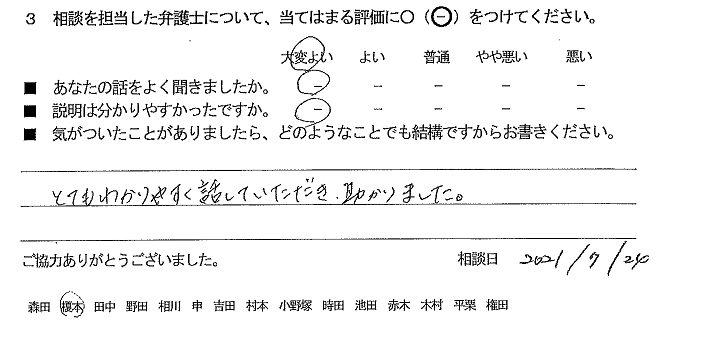 3 相談を担当した弁護士について、当てはまる評価に○（㊀）をつけてください。
大変よい よい 普通 やや悪い 悪い
■ あなたの話をよく聞きましたか。 － － － － －
■ 説明は分かりやすかったですか。 － － － － －
■ 気がついたことがありましたら、どのようなことでも結構ですからお書きください。
とてもわかりやすく話していただき、助かりました。
ご協力ありがとうございました。 相談日 2021/7/20
森田 榎木 田中 野田 相川 申 吉田 村本 小野塚 時田 池田 赤木 木村 平栗 権田